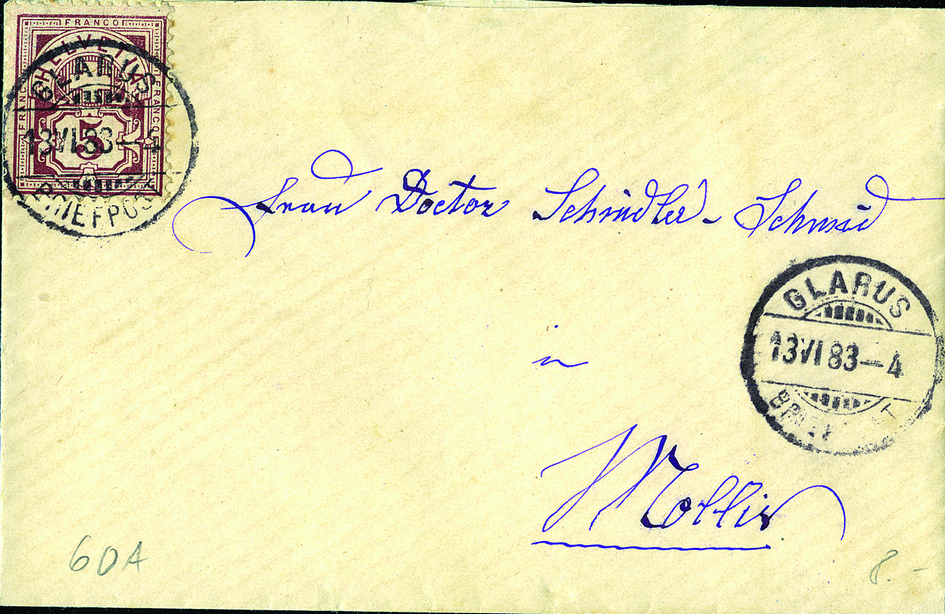 FRANCO
HELVETIA
FRANCO
FRANCO
5
GLARUS
13 VI 83–4
BRIEFPOST
Frau Doctor Schindler-Schmid
GLARUS
13 VI 83–4
in
Mollis
60A
8.-